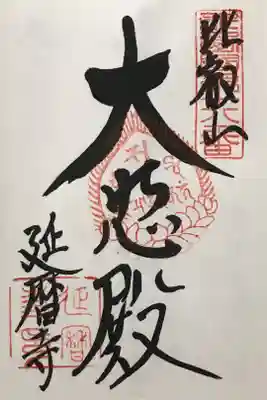 比叡山
大悲殿
延暦寺